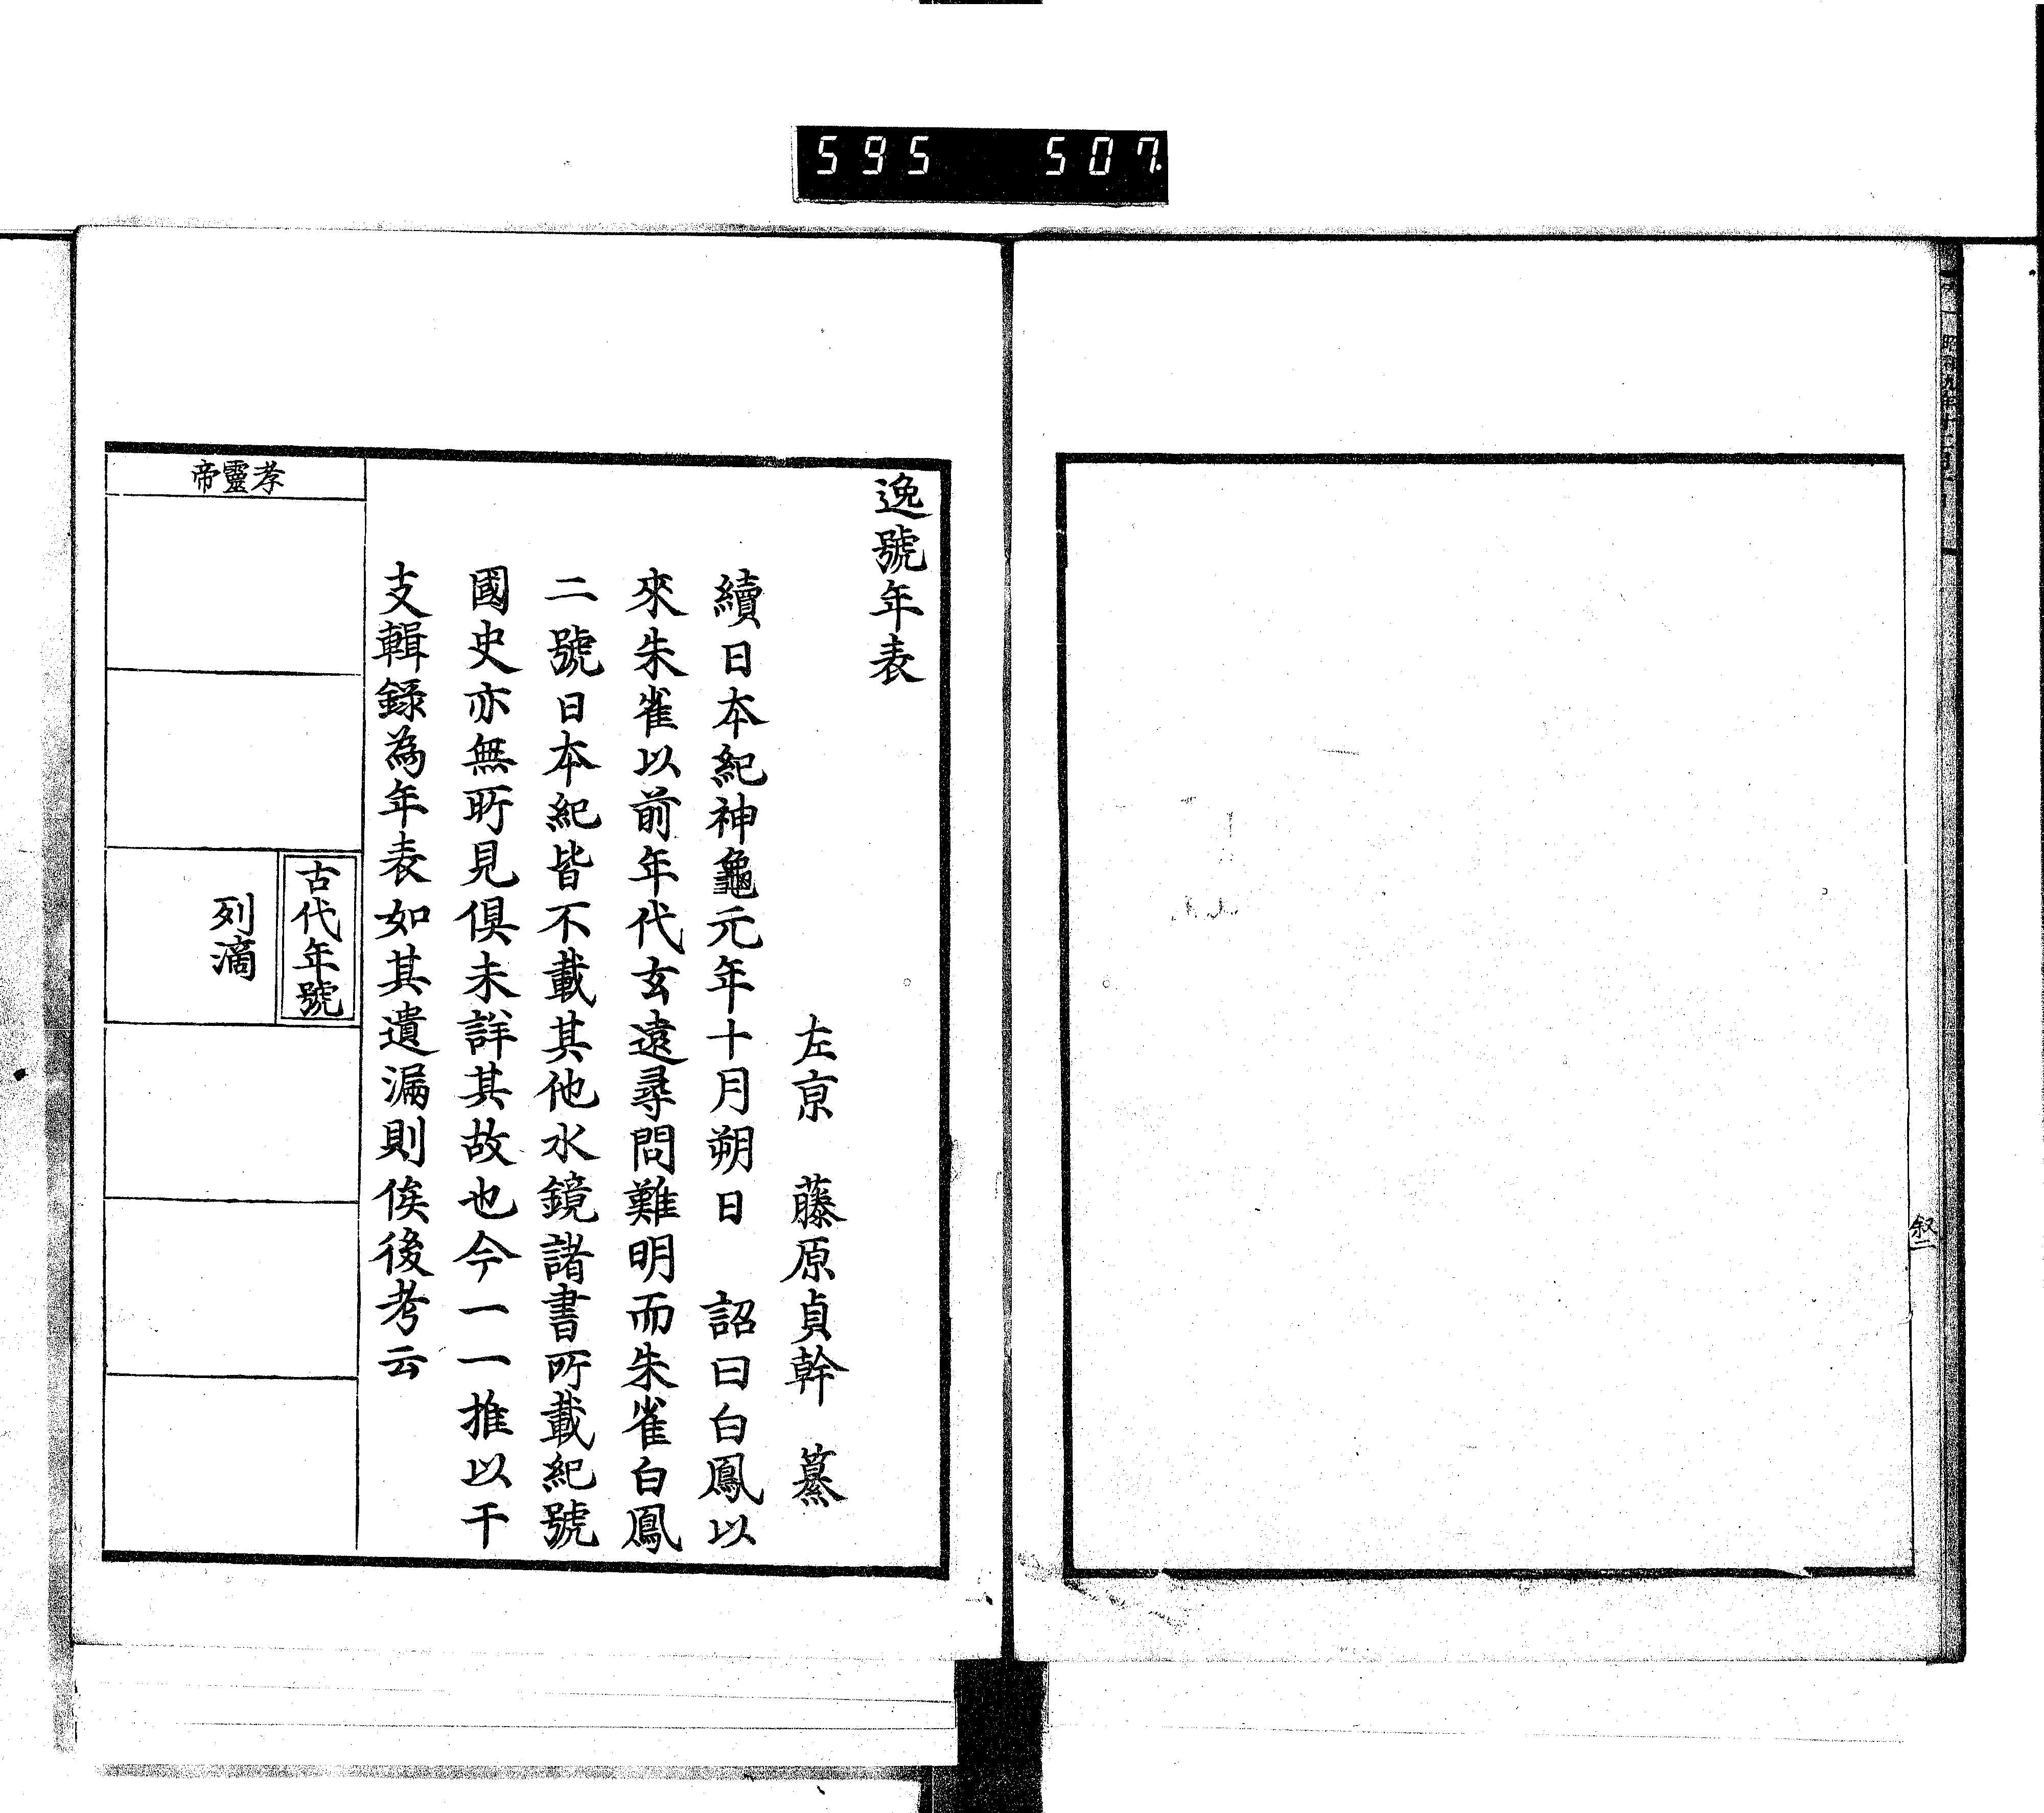 595 507
叙二
逸號年表
左京 藤原貞幹 纂
續日本紀神龜元年十月朔日 詔曰白鳳以
來朱雀以前年代玄遠尋問難明而朱雀白鳳
二號日本紀皆不載其他水鏡諸書所載紀號
國史亦無所見俱未詳其故也今一一推以干
支輯録為年表如其遺漏則俟後考云
孝靈帝
古代年號
列滴